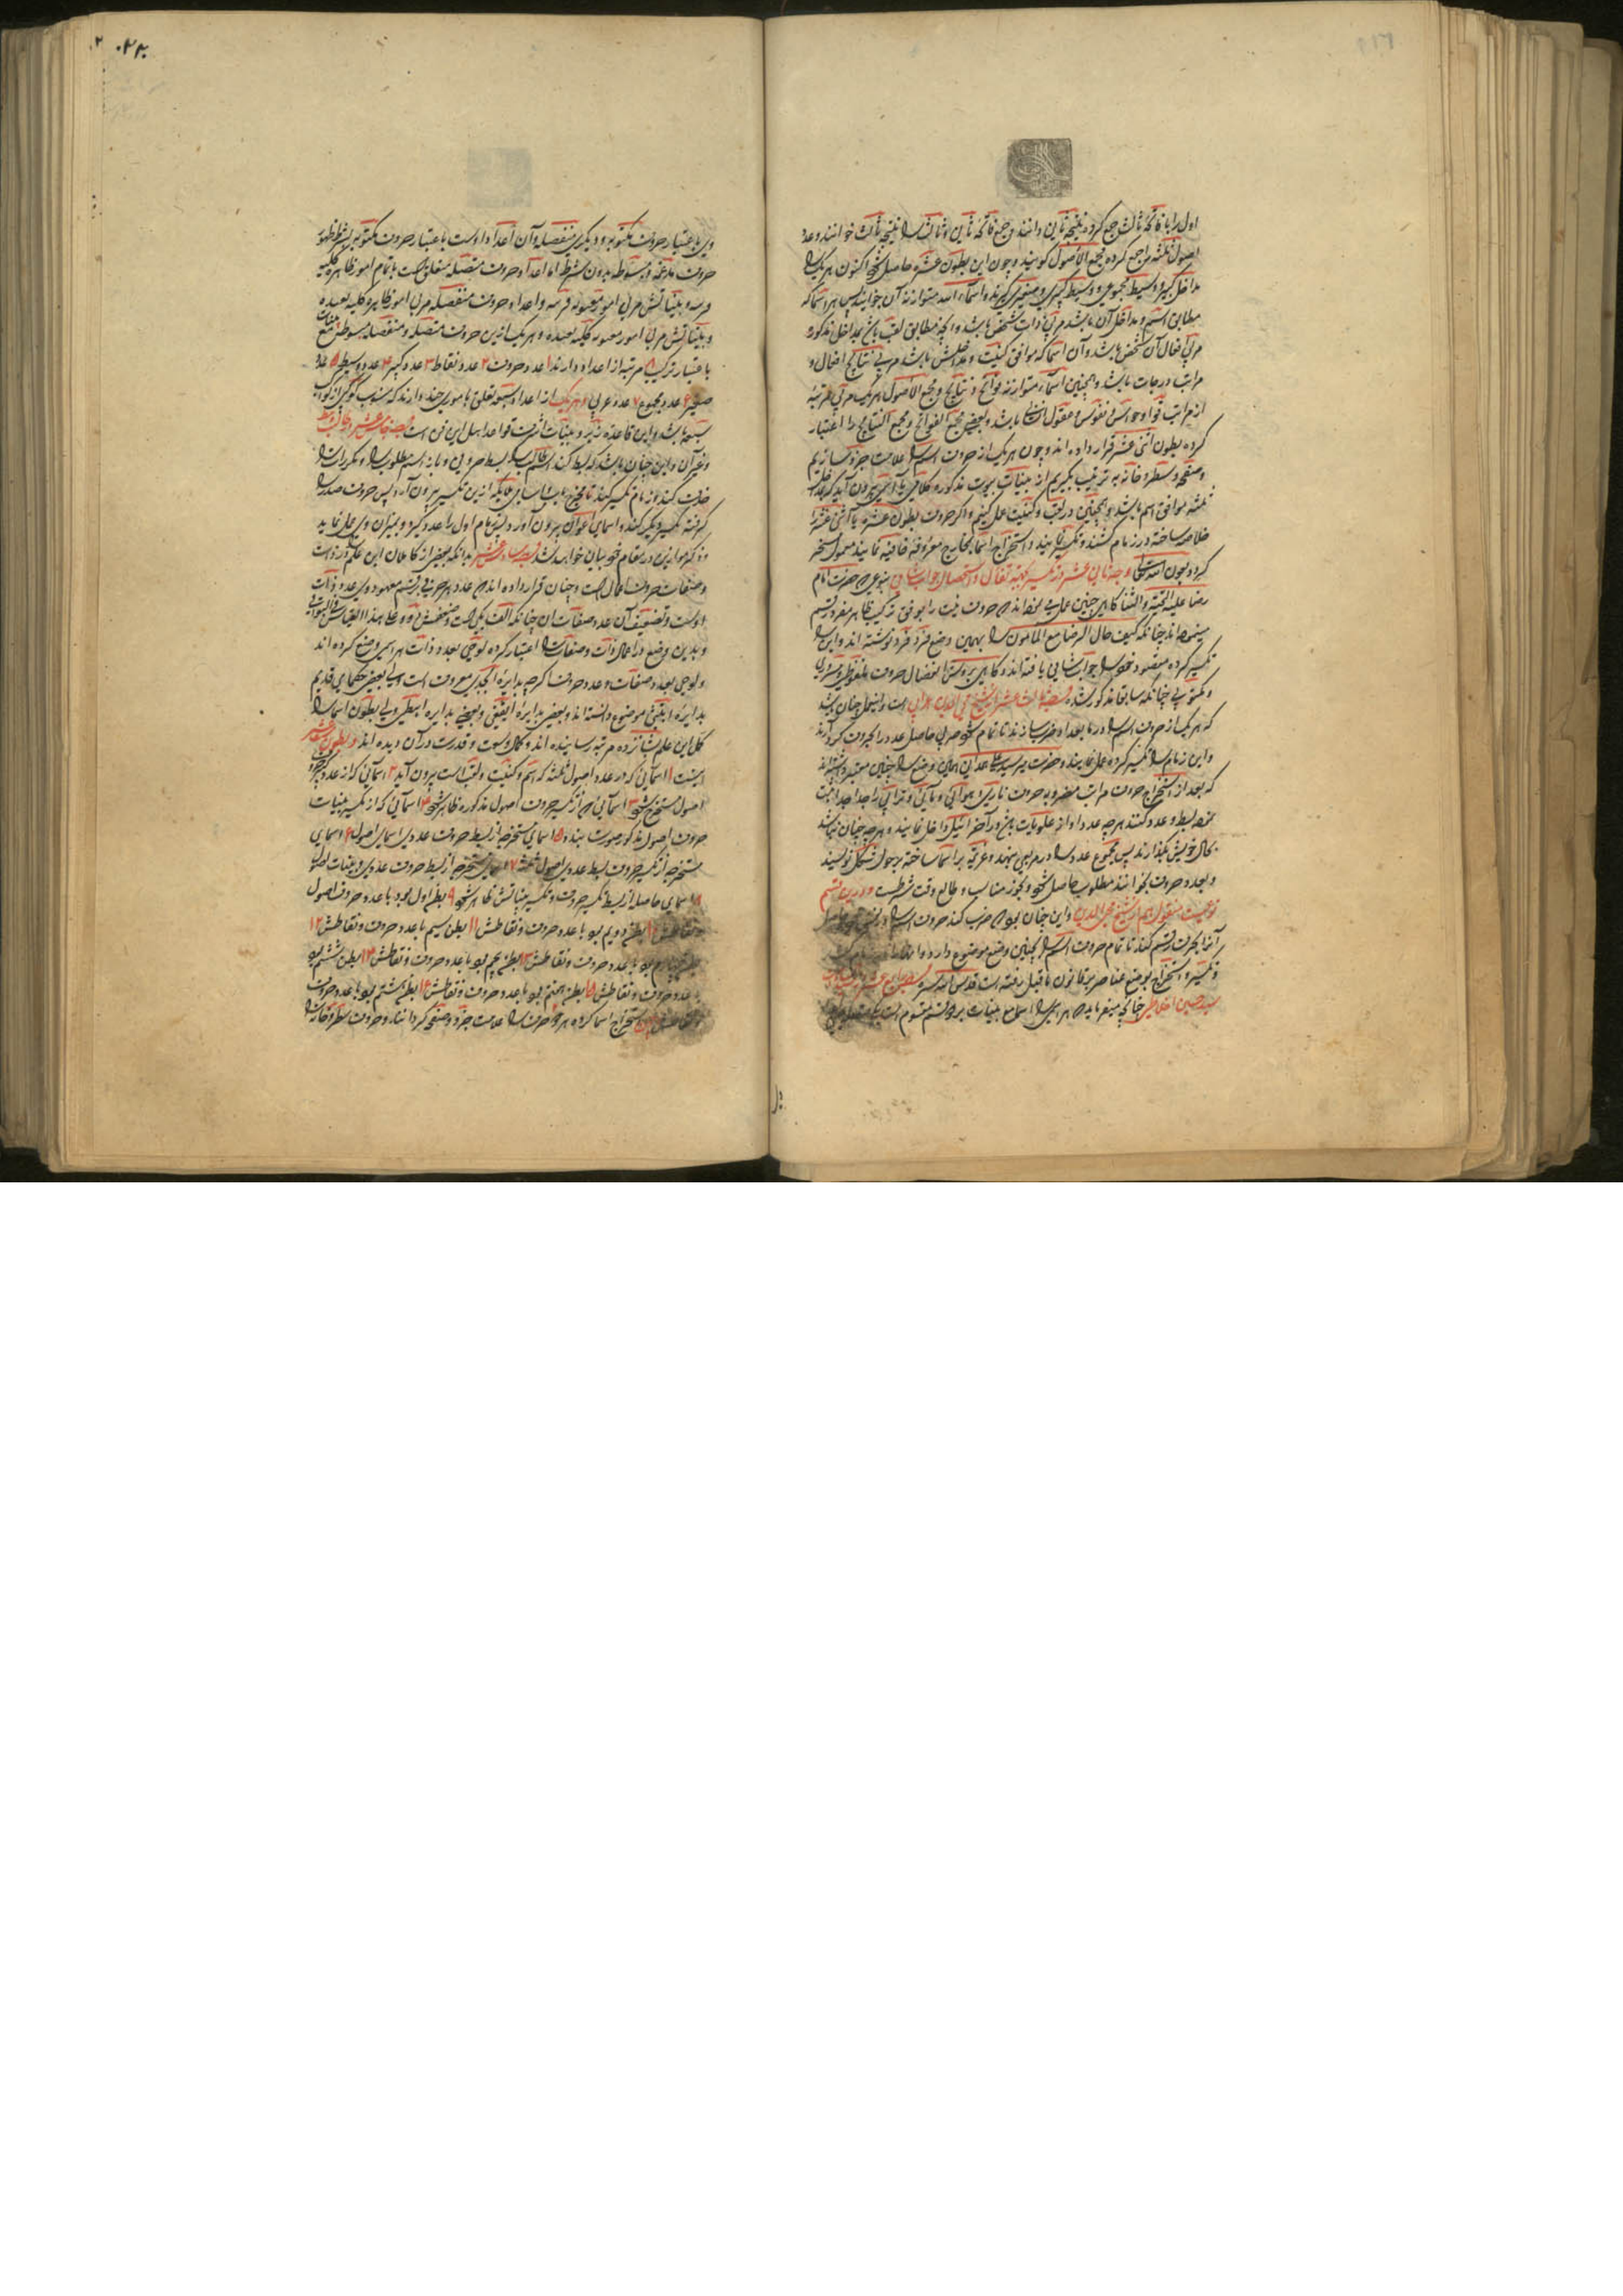 اول را با فاتحه ثالث جمع کرده نتیجه ثانی دانند و جمع فاتحه ثانی و ثالث را نتیجه ثالث خوانند و عدد
اصول ثلثه را جمع کرده مجمع الاصول گویند و چون این بطون عشره حاصل شود اکنون هر یک را
مداخل کبیر و وسیط مجموعی و وسیط کبیری و صغیر گیرند و اسماء الله متوازنه آن خوانند پس هر اسم که
مطابق اسم و مداخل آن باشد مربی ذات شخص باشد و آنچه مطابق لقب باشد بمداخل مذکوره
مربی افعال آن شخص باشد و آن اسما که موافق کنیت و مداخلش باشد مربی نتایج افعال و
مراتب درجات باشد و همچنین اسماء متوازنه فواتح و نتایج و مجمع الاصول هر یک مربی مرتبه
از مراتب قوا و حواس و نفوس و عقول باشد و بعضی مجمع الفواتح و مجمع النتایج را اعتبار
کرده بطون اثنی عشر قرار داده اند و چون هر یک از حروف اسم را علامت جزو سازیم
و صفحه و سطر و خانه به ترتیب بگیریم از بینات بیوت مذکوره کلامی یا بیرون آید که
ثلثه موافق اسم باشد و همچنین در لقب و کنیت عمل کنیم و اگر حروف بطون عشره یا اثنی عشر را
خلاصه ساخته در زمام کشند و تکسیر نمایند و استخراج اسما بمخارج معروفه نمایند معمول
گردد بعون الله تعالی وجه ثانی عشر در تکسیر بجهة تفأل و استحصال جواب بنوعی که حضرت امام
رضا علیه التحیة والثنا گاهی چنین عمل می نموده اند که حروف نیت را بوفق ترکیب ظاهر مفرد رسم
مینموده اند چنانکه کیف حال الرضا مع المامون را بهمین وضع فرد فرد نوشته اند و این را
تکسیر کرده مقصود خود را جواب شافی یافته اند و گاهی بروش استفصال حروف ملفوظی و مسروری
و مکتوبی چنانکه سابقا مذکور شد وجه ثالث عشر از شیخ محی الدین عربی است و این عمل چنان باشد
که هر یک از حروف اسم را در ما بعد او ضرب سازند تا تمام شود ضربی حاصل عدد را حروف گردانند
و این زمام را تکسیر کرده عمل نمایند و حضرت میر سید علی همدانی همین وضع را چنین معتبر داشته اند
که بعد از استخراج حروف مراتب مضروبه حروف ناری و هوائی و مائی و ترابی را جدا جدا ثبت
نموده بسط و عدد کنند هر چه عدد او از علویات باشد در آخر ائیل داخل نمایند و هر چه چنان نباشد
بحال خویش بگذارند پس مجموع عدد را در مربعی نهند و عزیمه بر اسما ساخته بر حول شکل نویسند
و بعدد حروف بخوانند مطلوب حاصل شود و بخور مناسب و طالع وقت شرطست و در این قسم
نوعیست منقول هم از شیخ محی الدین و این چنان بود که ضرب کند حروف اسم را در نفس خود
آنرا بحرف رقم کند تا تمام حروف اسم را همچنین وضع موضوع دارد و
و تکسیر و استخراج بوضع عناصر بر قانون ماقبل رفته است قدس الله سره وجه رابع عشر
سید حسین اخلاطی چنانچه میفرماید که هر اسمی را اسما مع بینات بر دو قسم منقسم است یک
وی باعتبار حروف مکتوبه و دیگری منفصله و آن اعداد اوست باعتبار حروف مکتوبی بشرط ظهور
حروف مدغمه و مبسوطه بدون شرط اما اعداد حروف متصله متعلق است بتمام امور ظاهره کلیه
قریبه و بیناتش مربی امور معنویه قریبه و اعداد حروف منفصله مربی امور ظاهره کلیه بعیده
و بیناتش مربی امور معنویه کلیه بعیده و هر یک ازین حروف متصله و منفصله مبسوطه مع بینات
باعتبار ترکیب ۸ مرتبه از اعداد دارند ۱ عدد حروف ۲ عدد نقاط ۳ عدد کبیر ۴ عدد وسیط ۵ عدد
صغیر ۶ عدد مجموع ۷ عدد عربی و هر یک از اعداد سبعه تعلق بامور چند دارند که منسوب بکوکبی از کواکب
سبعه باشد و این قاعده زبر و بینات اشرف قواعد اهل این فن است وجه خامس عشر در طالب و مطلوب
و غیر آن و این چنان باشد که بسط کند اسم طالب را بسط حروفی و باز اسم مطلوب را و مکررات را
حذف کند و زمام تکسیر کند تا مخرج باب و اسامی ملائکه ازین تکسیر بیرون آرد پس حروف صدر را
گرفته تکسیر دیگر کند و اسمای اعوان بیرون آورد و بینه زمام اول را عدد گیرد و بمیزان وی عمل نماید
و ذکر موازین در مقام خود بیان خواهد شد وجه سادس عشر بدانکه بعضی از کاملان این علم در ذات
و صفات حروف اعمال است و چنان قرار داده اند که عدد هر حرفی برقم معهود وی عدد ذات
اوست و تضعیف آن عدد صفات آن چنانکه الف یک است و ضعفش دو و علی هذا القیاس فی البواقی
و بدین وضع در اعمال ذات و صفات را اعتبار کرده لوحی بعدد ذات هر اسمی وضع کرده اند
و لوحی بعدد صفات و عدد حروف اگر چه بدایره ابجدی معروف است اما بعضی حکمای قدیم
بدایره ابتثی موضوع دانسته اند و بعضی بدایره ایقغی و بعضی بدایره اهطمی ولی بطون اسما را
کمل این علم شانزده مرتبه رسانیده اند و کمال وسعت و قدرت در آن دیده اند و بطون ستة عشر
اینست ۱ اسمائی که در عدد اصول ثلثه که اسم و کنیت و لقب است بیرون آید ۲ اسمائی که از عدد حروف
اصول مستخرج شود ۳ اسمائی که از تکسیر حروف اصول مذکوره ظاهر شود ۴ اسمائی که از تکسیر بینات
حروف اصول مذکور صورت بندد ۵ اسمای مستخرجه از بسط حروف عددی اسمای اصول ۶ اسمای
مستخرجه از تکسیر حروف بسط عددی اصول ثلثه ۷ اسمای مستخرجه از بسط حروف عددی و بینات اصول
۸ اسمای حاصله از بسط تکسیر حروف و تکسیر بیناتش ظاهر شود ۹ بطن اول بود با عدد حروف اصول
و نقاطش ۱۰ بطن دویم بود با عدد حروف و نقاطش ۱۱ بطن سیم با عدد حروف و نقاطش ۱۲
بطن چهارم بود با عدد حروف و نقاطش ۱۳ بطن پنجم بود با عدد حروف و نقاطش ۱۴ بطن ششم بود
با عدد حروف و نقاطش ۱۵ بطن هفتم بود با عدد حروف و نقاطش ۱۶ بطن هشتم بود با عدد حروف
و نقاطش استخراج اسما کرده هر دو حرف را علامت جزو و صفحه گردانند و حروف سطر و خانه را